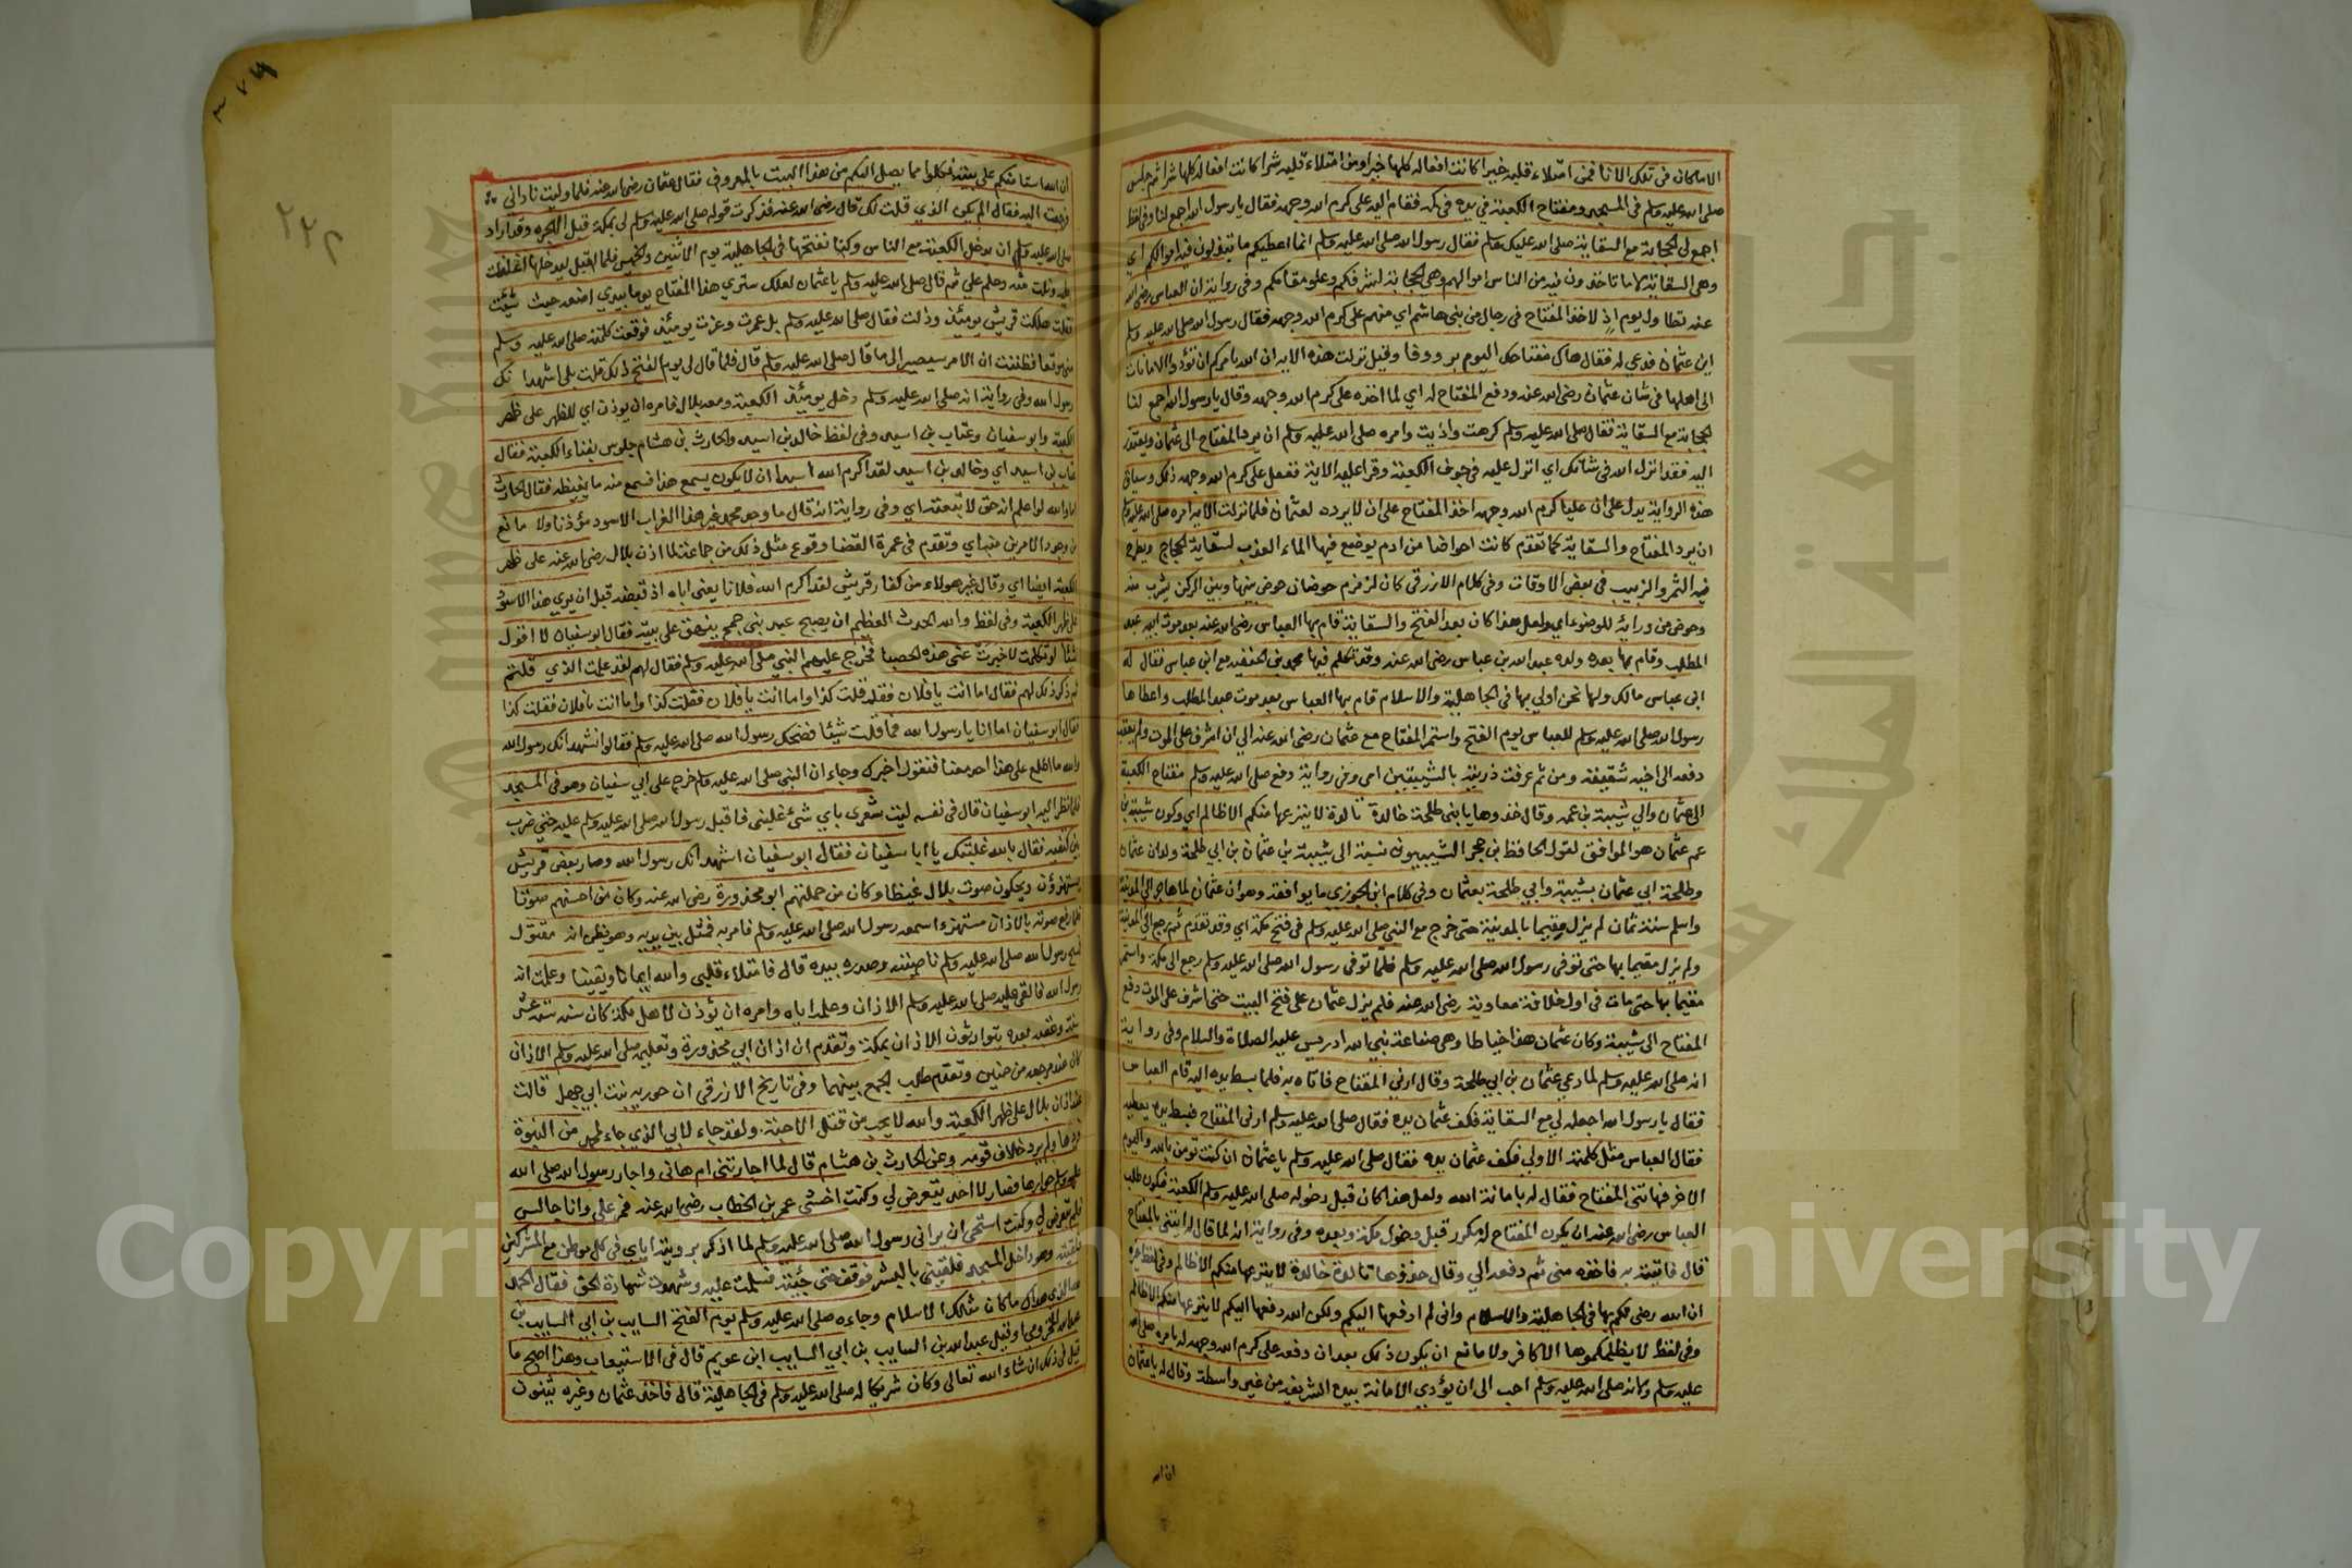 الا ما كان في تلك الانا فمن امتلاء قلبه خيرا كانت افعاله كلها خيرا ومن امتلاء قلبه شرا كانت افعاله كلها شرا ثم جلس
صلى الله عليه وسلم في المسجد ومفتاح الكعبة في يده في كمه فقام اليه على كرم الله وجهه فقال يا رسول الله اجمع لنا وفي لفظ
اجمع لي الحجابة مع السقاية صلى الله عليك وسلم فقال رسول الله صلى الله عليه وسلم انما اعطيكم ما تبذلون فيه اموالكم اي
وهي السقاية لا ما تاخذون فيه من الناس اموالهم وهي الحجابة لشرفكم وعلو مقامكم وفي رواية ان العباس رضي الله
عنه تطاول يوم اذ لاخذ المفتاح في رجال من بني هاشم اي منهم على كرم الله وجهه فقال رسول الله صلى الله عليه وسلم
اين عثمان فدعي له فقال هاك مفتاحك اليوم بر ووفا وقيل نزلت هذه الاية ان الله يامركم ان تؤدوا الامانات
الى اهلها في شان عثمان رضي الله عنه ودفع المفتاح له اي لما اخذه على كرم الله وجهه وقال يا رسول الله اجمع لنا
الحجابة مع السقاية فقال صلى الله عليه وسلم كرهت واذيت وامره صلى الله عليه وسلم ان يرد المفتاح الى عثمان ويعتذر
اليه فقد انزل الله في شانك اي انزل عليه في جوف الكعبة وقرا عليه الاية ففعل على كرم الله وجهه ذلك وسياق
هذه الرواية يدل على ان عليا كرم الله وجهه اخذ المفتاح على ان لا يرده لعثمان فلما نزلت الاية امره صلى الله عليه وسلم
ان يرد المفتاح والسقاية كما تقدم كانت احواضا من ادم يوضع فيها الماء العذب لسقاية الحجاج ويطرح
فيه التمر والزبيب في بعض الاوقات وفي كلام الازرقي كان لزمزم حوضان حوض بينها وبين الركن يشرب منه
وحوض من ورائه للوضوء اي ولعل هذا كان بعد الفتح والسقاية قام بها العباس رضي الله عنه بعد موت ابيه عبد
المطلب وقام بها بعده ولده عبد الله بن عباس رضي الله عنه وقد تكلم فيها محمد بن الحنفية مع ابن عباس فقال له
ابن عباس مالك ولها نحن اولي بها في الجاهلية والاسلام قام بها العباس بعد موت عبد المطلب واعطاها
رسول الله صلى الله عليه وسلم للعباس يوم الفتح واستمر المفتاح مع عثمان رضي الله عنه الى ان اشرف على الموت ولم يعقب
دفعه الى اخيه شقيقه ومن ثم عرفت ذريته بالشيبيين امى وفي رواية دفع صلى الله عليه وسلم مفتاح الكعبة
الى عثمان والي شيبة بن عمه وقال خذوها يا بني طلحة خالدة تالدة لا ينزعها منكم الا ظالم اي وكون شيبة بن
عم عثمان هو الموافق لقول الحافظ بن حجر الشيبيون نسبة الى شيبة بن عثمان بن ابي طلحة ولدان عثمان
وطلحة ابي عثمان بشيبة وابي طلحة بعثمان وفي كلام ابن الجوزي ما يوافقه وهو ان عثمان لما هاجر الى المدينة
واسلم سنة ثمان لم يزل مقيما بالمدينة حتى خرج مع النبي صلى الله عليه وسلم في فتح مكة اي وقد تقدم ثم رجع الى المدينة
ولم يزل مقيما بها حتى توفي رسول الله صلى الله عليه وسلم فلما توفي رسول الله صلى الله عليه وسلم رجع الى مكة واستمر
مقيما بها حتى مات في اول خلافة معاوية رضي الله عنه فلم يزل عثمان على فتح البيت حتى اشرف على الموت دفع
المفتاح الى شيبة وكان عثمان هذا خياطا وهي صناعة نبي الله ادريس عليه الصلاة والسلام وفي رواية
انه صلى الله عليه وسلم لما دعي عثمان بن ابي طلحة وقال ارني المفتاح فاتاه به فلما بسط يده اليه قام العباس
فقال يا رسول الله اجعله لي مع السقاية فكف عثمان يده فقال صلى الله عليه وسلم ارني المفتاح فبسط يده يعطيه
فقال العباس مثل كلمته الاولى فكف عثمان يده فقال صلى الله عليه وسلم يا عثمان ان كنت تومن بالله واليوم
الاخر فهاتني المفتاح فقال له بامانة الله ولعل هذا كان قبل دخوله صلى الله عليه وسلم الكعبة فيكون طلب
العباس رضي الله عنه ان يكون المفتاح له تكرر قبل دخول مكة وبعده وفي رواية انه لما قال له ايتني بالمفتاح
قال فاتيته به فاخذه مني ثم دفعه الي وقال خذوها تالدة خالدة لا ينزعها منكم الا ظالم وفي لفظ
ان الله رضي لكم بها في الجاهلية والاسلام واني لم ادفعها اليكم ولكن الله دفعها اليكم لا ينزعها منكم الا ظالم
وفي لفظ لا يظلمكموها الا كافر ولا مانع ان يكون ذلك بعد ان دفعه على كرم الله وجهه له بامره صلى الله
عليه وسلم وكانه صلى الله عليه وسلم احب الى ان يؤدي الامانة بيده الشريفة من غير واسطة وقال له يا عثمان
ان الله
٢٧٥
٢٢٣
ان الله استامنكم على بيته فكلوا مما يصل اليكم من هذا البيت بالمعروف فقال عثمان رضي الله عنه فلما وليت ناداني
فرجعت اليه فقال الم يكن الذي قلت لك قال رضي الله عنه فذكرت قوله صلى الله عليه وسلم لي بمكة قبل الهجرة وقد اراد
صلى الله عليه وسلم ان يدخل الكعبة مع الناس وكنا نفتحها في الجاهلية يوم الاثنين والخميس فلما اقبل ليدخلها اغلظت
عليه ونلت منه وحلم علي ثم قال صلى الله عليه وسلم يا عثمان لعلك ستري هذا المفتاح يوما بيدي اضعه حيث شئت
فقلت هلكت قريش يومئذ وذلت فقال صلى الله عليه وسلم بل عمرت وعزت يومئذ فوقعت كلمته صلى الله عليه وسلم
مني موقعا فظننت ان الامر سيصير الى ما قال صلى الله عليه وسلم قال فلما قال لي يوم الفتح ذلك قلت بلى اشهد انك
رسول الله وفي رواية انه صلى الله عليه وسلم دخل يومئذ الكعبة ومعه بلال فامره ان يوذن اي للظهر على ظهر
الكعبة وابو سفيان وعتاب بن اسيد وفي لفظ خالد بن اسيد والحارث بن هشام جلوس بفناء الكعبة فقال
عتاب بن اسيد اي وخالد بن اسيد لقد اكرم الله اسيدا ان لا يكون يسمع هذا فسمع منه ما يغيظه فقال الحارث
اما والله لو اعلم انه حق لاتبعته اي وفي رواية انه قال ما وجد محمد غير هذا الغراب الاسود مؤذنا ولا مانع
من وجود الامرين منه اي وتقدم في عمرة القضا وقوع مثل ذلك من جماعة لما اذن بلال رضي الله عنه على ظهر
الكعبة ايضا اي وقال غير هولاء من كفار قريش لقد اكرم الله فلانا يعني اباه اذ قبضه قبل ان يري هذا الاسود
على ظهر الكعبة وفي لفظ والله الحدث العظيم ان يصبح عبد بني جمح ينهق على بيته فقال ابو سفيان لا اقول
شيئا لو تكلمت لاخبرت عني هذه الحصبا فخرج عليهم النبي صلى الله عليه وسلم فقال لهم لقد علمت الذي قلتم
ثم ذكر ذلك لهم فقال اما انت يا فلان فقد قلت كذا واما انت يا فلان فقلت كذا واما انت يا فلان فقلت كذا
فقال ابو سفيان اما انا يا رسول الله فما قلت شيئا فضحك رسول الله صلى الله عليه وسلم فقالوا نشهد انك رسول الله
والله ما اطلع على هذا احد معنا فنقول اخبرك وجاء ان النبي صلى الله عليه وسلم خرج على ابي سفيان وهو في المسجد
فلما نظر اليه ابو سفيان قال في نفسه ليت شعري باي شئ غلبني فاقبل رسول الله صلى الله عليه وسلم عليه حتى ضرب
بين كتفيه فقال بالله غلبتك يا ابا سفيان فقال ابو سفيان اشهد انك رسول الله وصار بعض قريش
يستهزؤن ويحكون صوت بلال غيظا وكان من جملتهم ابو محذورة رضي الله عنه وكان من احسنهم صوتا
فلما رفع صوته بالاذان مستهزءا سمعه رسول الله صلى الله عليه وسلم فامر به فمثل بين يديه وهو يظن انه مقتول
فمسح رسول الله صلى الله عليه وسلم ناصيته وصدره بيده قال فامتلاء قلبي والله ايمانا ويقينا وعلمت انه
رسول الله فالقى عليه صلى الله عليه وسلم الاذان وعلمه اياه وامره ان يؤذن لاهل مكة كان سنه ستة عشر
سنة وعقبه بعده يتوارثون الاذان بمكة وتقدم ان اذان ابي محذورة وتعليمه صلى الله عليه وسلم الاذان
كان عند مرجعه من حنين وتقدم طلب الجمع بينهما وفي تاريخ الازرقي ان جويرية بنت ابي جهل قالت
عند اذان بلال على ظهر الكعبة والله لا نحب من قتل الاحبة ولقد جاء لابي الذي جاء لمحمد من النبوة
فردها ولم يرد خلاف قومه وعن الحارث بن هشام قال لما اجارتني ام هاني واجار رسول الله صلى الله
عليه وسلم جوارها فصار لا احد يتعرض لي وكنت اخشى عمر بن الخطاب رضي الله عنه فمر علي وانا جالس
فلم يتعرض لي وكنت استحي ان يراني رسول الله صلى الله عليه وسلم لما اذكر برويته اياي في كل موطن مع المشركين
فلقيته وهو داخل المسجد فلقيني بالبشر فوقف حتى جئته فسلمت عليه وشهدت شهادة الحق فقال الحمد
لله الذي هداك ما كان مثلك الاسلام وجاءه صلى الله عليه وسلم يوم الفتح السايب بن ابي السايب بن
عبد الله المخزومي وقيل عبد الله بن السايب بن ابي السايب ابن عويم قال في الاستيعاب وهذا اصح ما
قيل في ذلك ان شاء الله تعالى وكان شريكا له صلى الله عليه وسلم في الجاهلية قال فاخذ عثمان وغيره يثنون
Copyright © King Saud University
جامعة الملك سعود